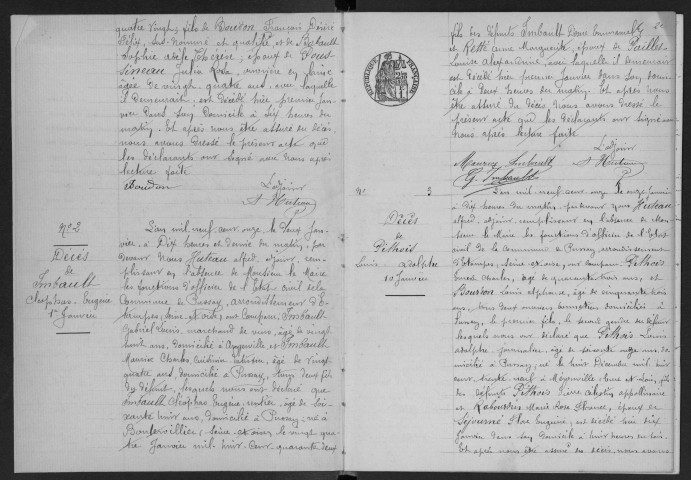 quatre vingt, fils de Bourdon François Désiré
Félix, sus-nommé et qualifié, et de Imbault
Sophie Adèle, époux de
Julia Rose, ouvrière en laine
âgée de vingt quatre ans, avec laquelle
il demeurait, est décédé hier premier Jan-
vier dans son Domicile à Six heures du
matin. Et après nous être assuré du décès
nous avons dressé le présent acte que
les déclarants ont signé avec nous après
lecture faite
Bourdon L'adjoint
A Huteau
N° 2
Décès
de
Imbault
Cléophas-Eugène
1er Janvier
L'an mil neuf cent onze le deux Jan-
vier à Dix heures et demie du matin, par
devant Nous Huteau Alfred, adjoint, rem-
plissant en l'absence de Monsieur le Maire
les fonctions d'officier de l'Etat civil de la
Commune de Pussay, arrondissement d'E-
tampes, Seine et Oise, ont comparu, Imbault
Gabriel Louis, marchand de vins, âgé de vingt
huit ans, domicilié à Angerville et Imbault
Maurice Charles, âgé de vingt
quatre ans, domicilié à Pussay, tous deux fils
du défunt, lesquels nous ont déclaré que
Imbault Cléophas Eugène, rentier, âgé de soi-
xante huit ans, domicilié à Pussay, né à
Bouterviliers, Seine et Oise, le vingt qua-
tre Janvier mil huit cent quarante deux
fils des défunts Imbault
et Anne Marguerite, époux de Paillet
Louise Alexandrine, avec laquelle il demeurait
est décédé hier premier Janvier dans son domi-
cile à deux heures du matin. Et après nous
être assuré du décès Nous avons dressé le
présent acte que les déclarants ont signé avec
nous après lecture faite
RÉPUBLIQUE FRANÇAISE
Maurice Imbault L'adjoint
G. Imbault A Huteau
N° 3
Décès
de
Péthois
Louis Adolphe
10 Janvier
L'an mil neuf cent onze le onze Janvier
à dix heures du matin, par devant Nous Huteau
Alfred, adjoint, remplissant en l'absence de Mon-
sieur le Maire les fonctions d'officier de l'Etat
civil de la Commune de Pussay, arrondissement
d'Etampes, Seine et Oise, ont comparu Péthois
Ernest Charles, âgé de quarante trois ans, et
Bourdon Louis Alphonse, âgé de cinquante trois
ans, tous deux domiciliés à
Pussay, le premier fils, le second gendre du défunt
lesquels nous ont déclaré que Péthois Louis
Adolphe, journalier, âgé de soixante onze ans, do-
micilié à Pussay, né le huit Décembre mil huit
cent trente neuf à Méréville, fils
des défunts Péthois Pierre
et Marie Rose, époux de
Séjourné Eugénie, est décédé hier dix
Janvier dans son Domicile à huit heures du soir.
Et après nous être assuré du décès, nous avons